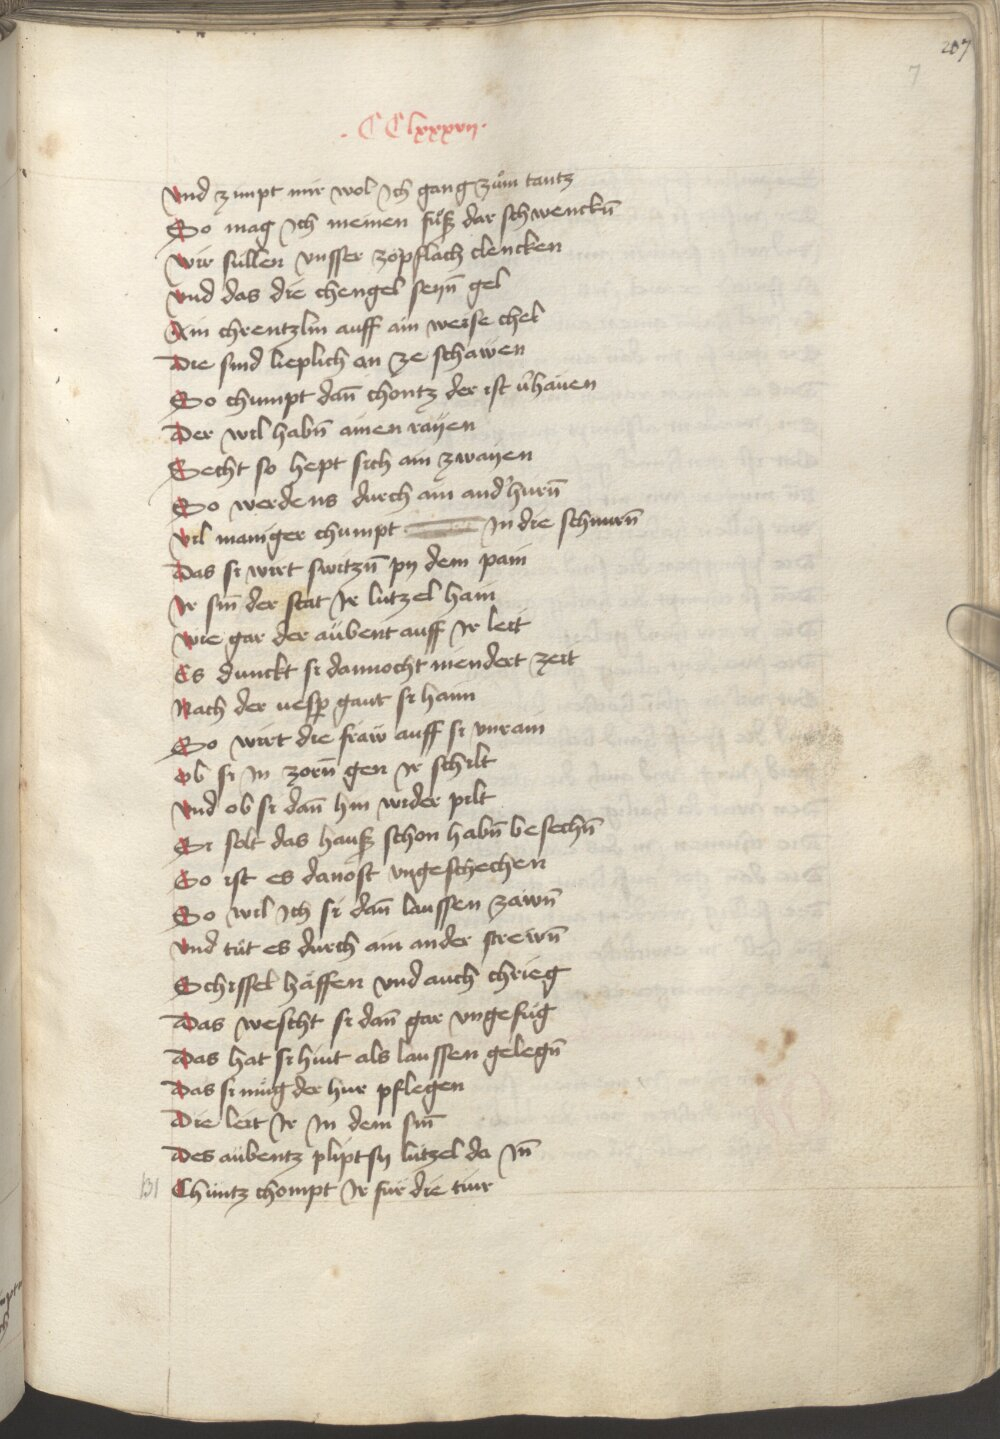 207
7
. CClxxxvii .
vnd zimpt mir wol Ich gang zům tantz
So mag Ich meinen fůß dar schwenckn̄
wir süllen vnsser zöpflach clencken
vnd das die chengel seyn̄ gel
Ain chrentzlin auff ain weise chel
Die sind lieplich an ze schawen
So chumpt dan̄ chontz der ist v̓hawen
Der wil habn̄ ainen rayen
Secht so hept sich ain zwayen
So werdens durch ain and̓ hurn̄
vil maniger chumpt In die schnurn̄
Das si wirt switzn̄ py dem pain
Ir sin̄ der stat Ir lützel hain
wie gar der aubent auff Ir leit
Es dunckt si dannocht niendert zeit
Nach der vesp̄ gaut si haim
So wirt die fraw auff si vnrain
ob si In zorn̄ gen Ir schilt
vnd ob si dan̄ hin wider pilt
Si solt das hauß schon habn̄ besechn̄
So ist es danost vngeschechen
So wil Ich si dan̄ laussen zäwn̄
vnd tůt es durch ain ander strewn̄
Schissel häffen vnd auch chrieg
Das wescht si dan̄ gar vngefüg
Das hat si hint als laussen gelegn̄
Das si müg der hur pflegen
Die leit Ir In dem sin̄
Des aubentz pliptsy lützel da In̄
131 Chüntz chompt Ir für die tiur